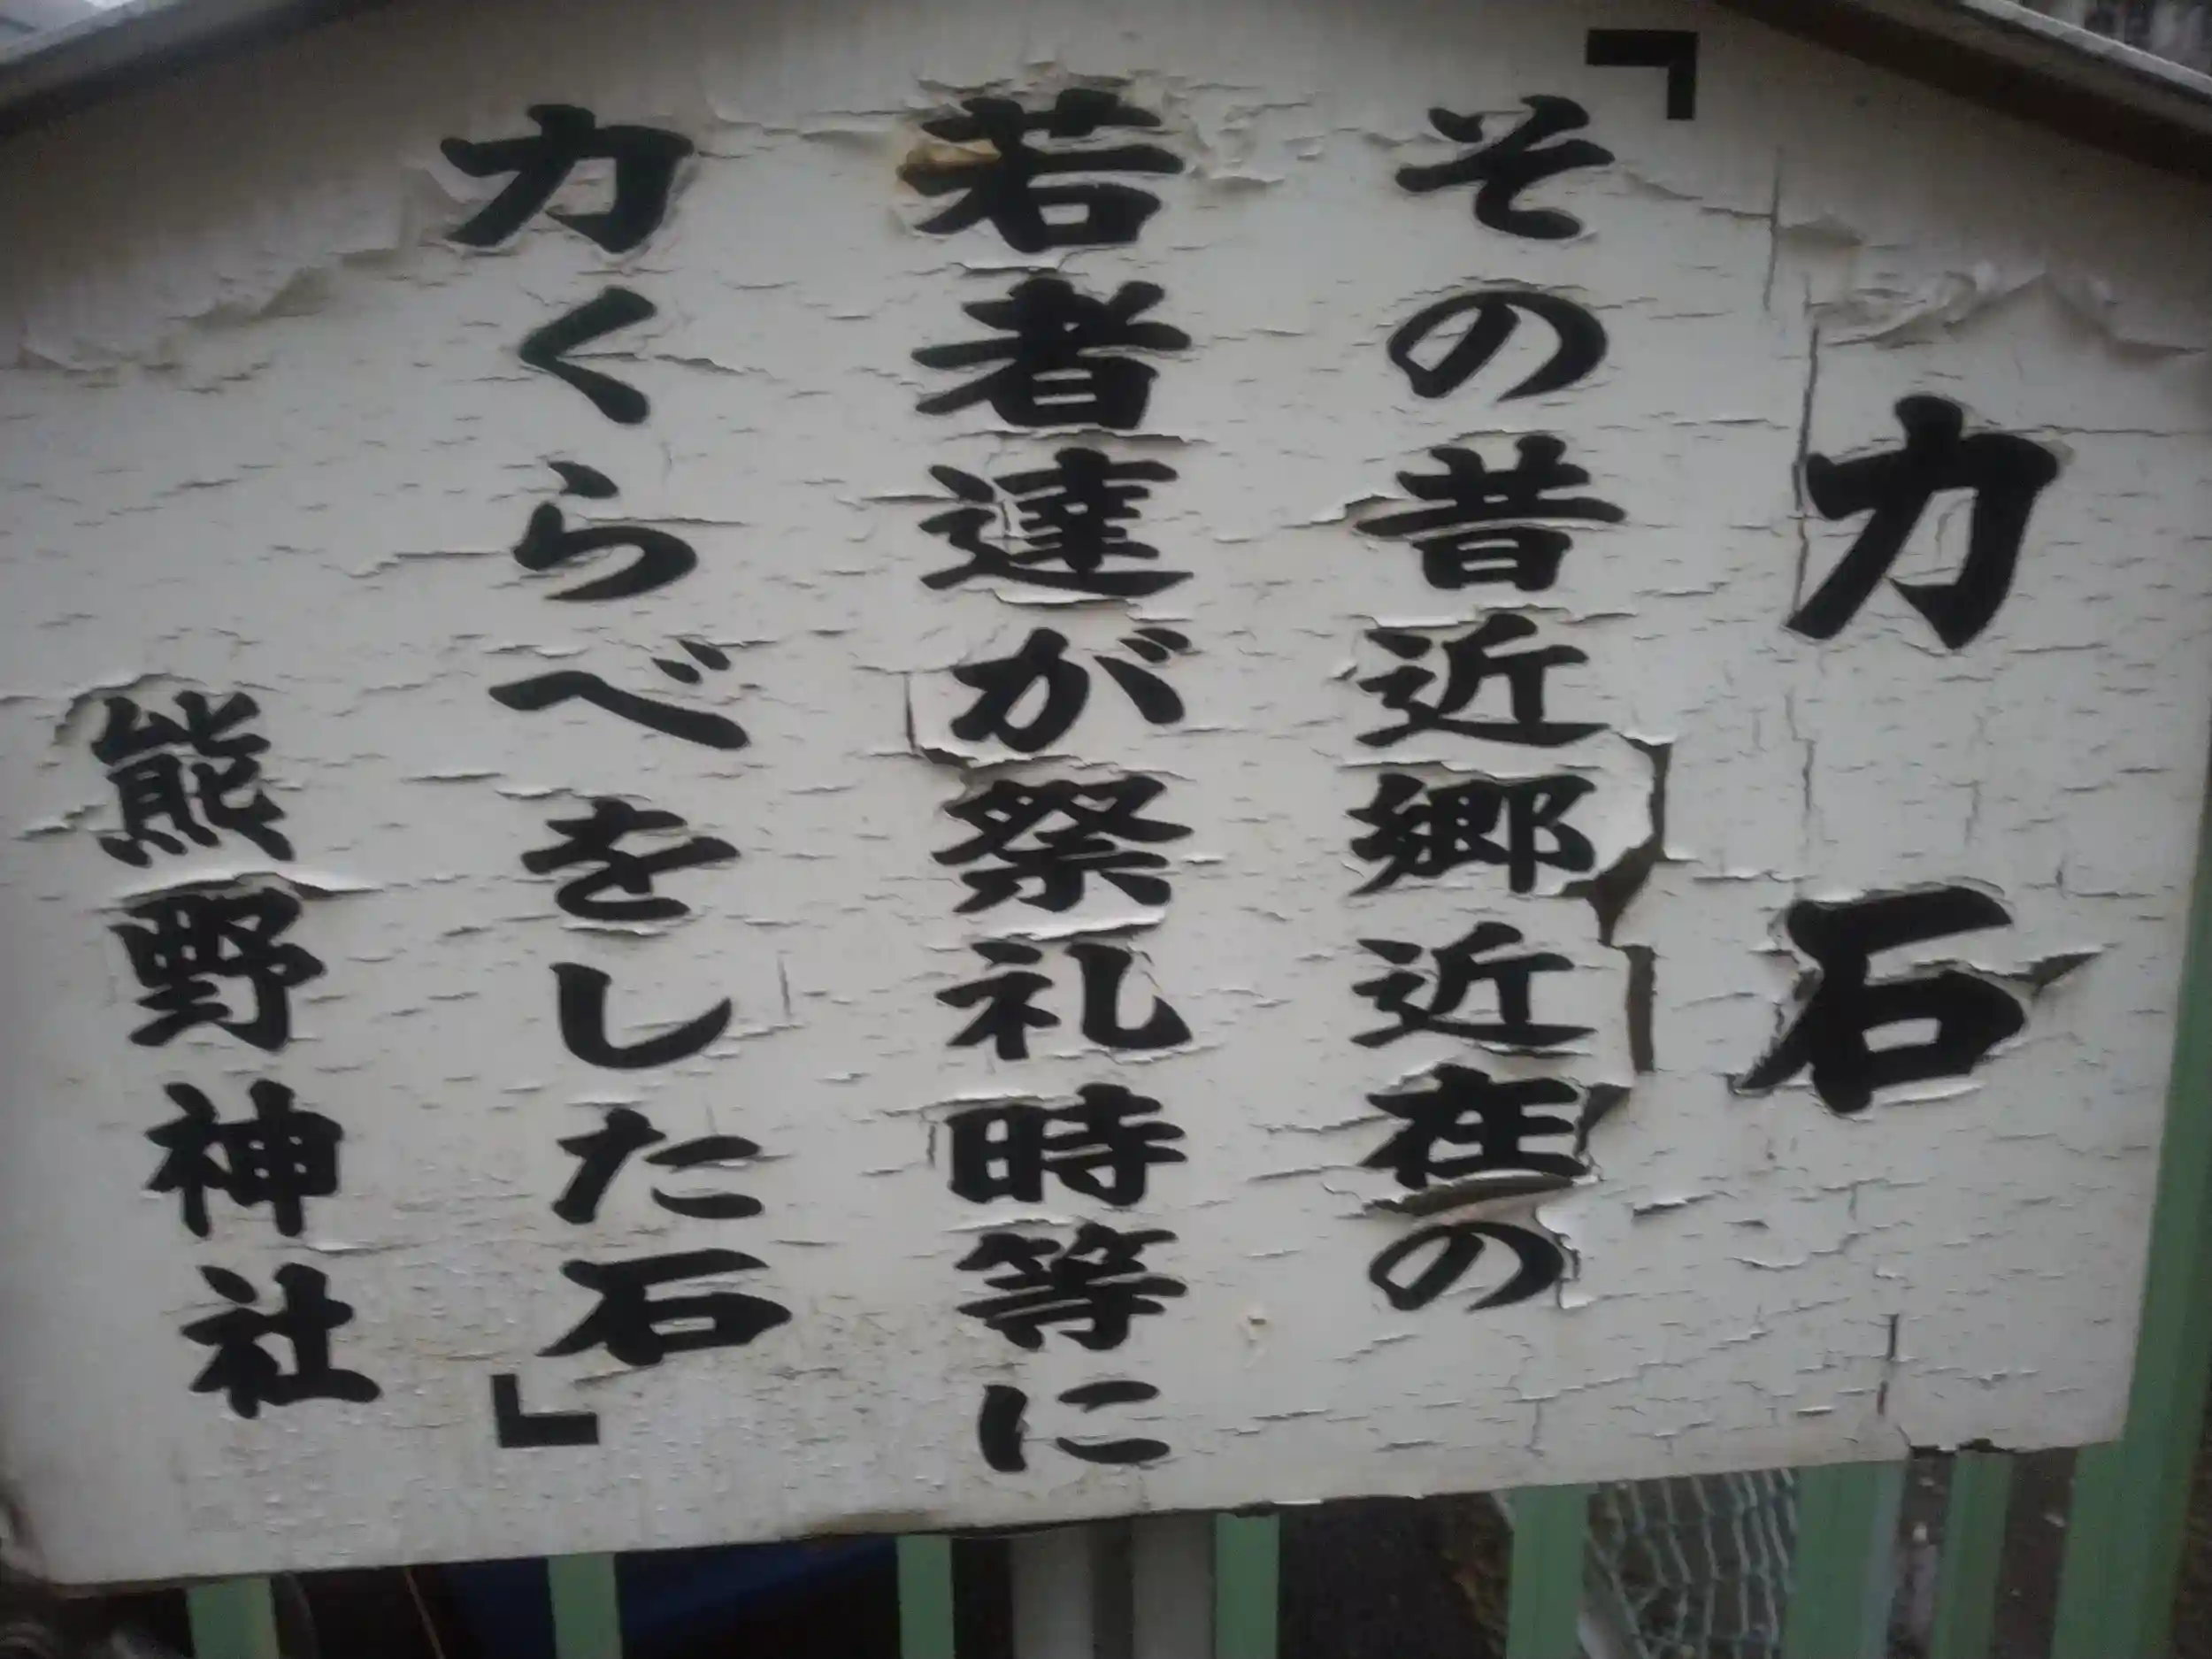 力石
「その昔近郷近在の
若者達が祭礼時等に
力くらべをした石」
熊野神社